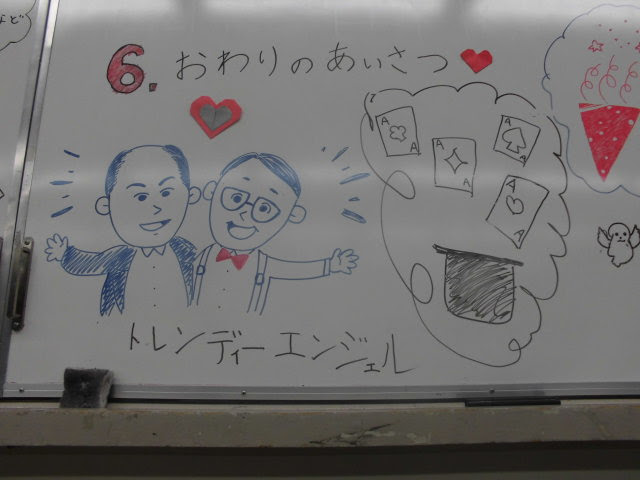 など
6. おわりのあいさつ
A A
A A
A A
A A
トレンディーエンジェル